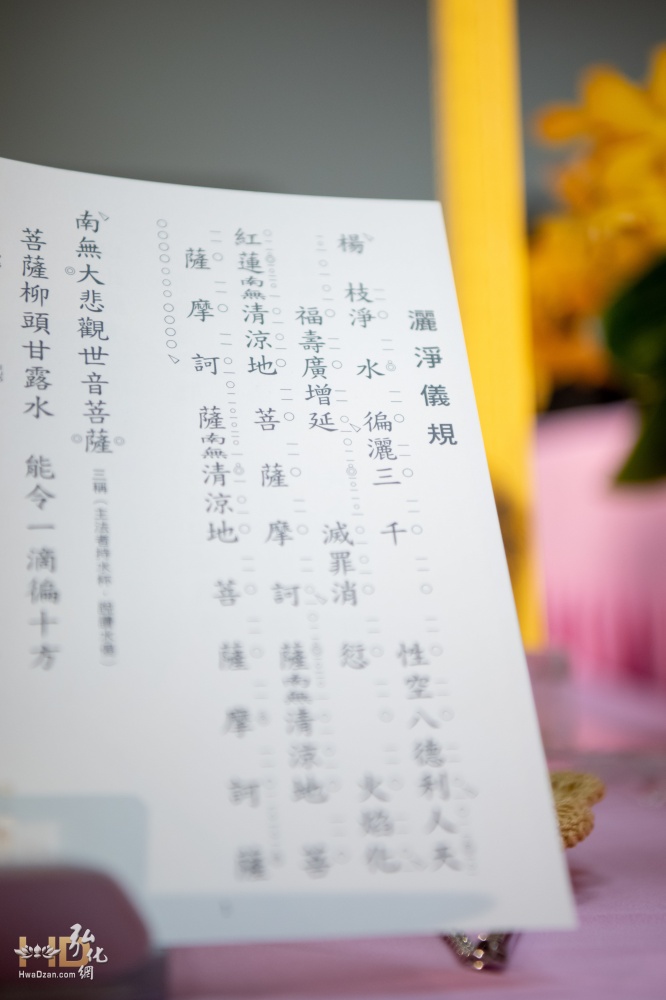 灑淨儀規
楊枝淨水 徧灑三千 性空八德利人天
福壽廣增延 滅罪消愆 火焰化
紅蓮南無清涼地 菩薩摩訶薩南無清涼地 菩
薩摩訶薩南無清涼地 菩薩摩訶薩
南無大悲觀世音菩薩 三稱
菩薩柳頭甘露水 能令一滴徧十方
HD弘化網
HwaDzan.com